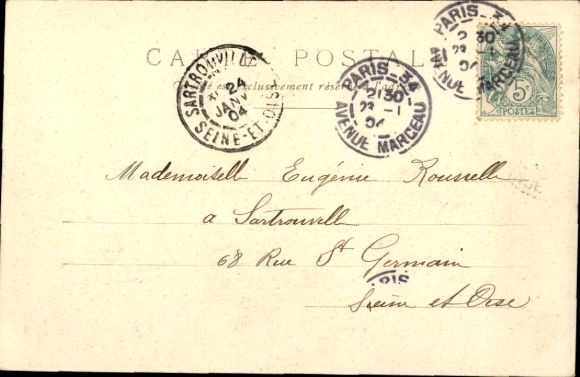 CARTE POSTALE
Ce côté est exclusivement réservé à l'adresse
SARTROUVILLE
24
JANV
04
SEINE-ET-OISE
PARIS_34
21 30
23 - 1
04
AVENUE MARCEAU
PARIS_34
2 30
23 - 1
04
AVENUE MARCEAU
5c
POSTES
Mademoiselle Eugénie Rousselle
a Sartrouvill
68 Rue St Germain
RIS
Seine et Oise